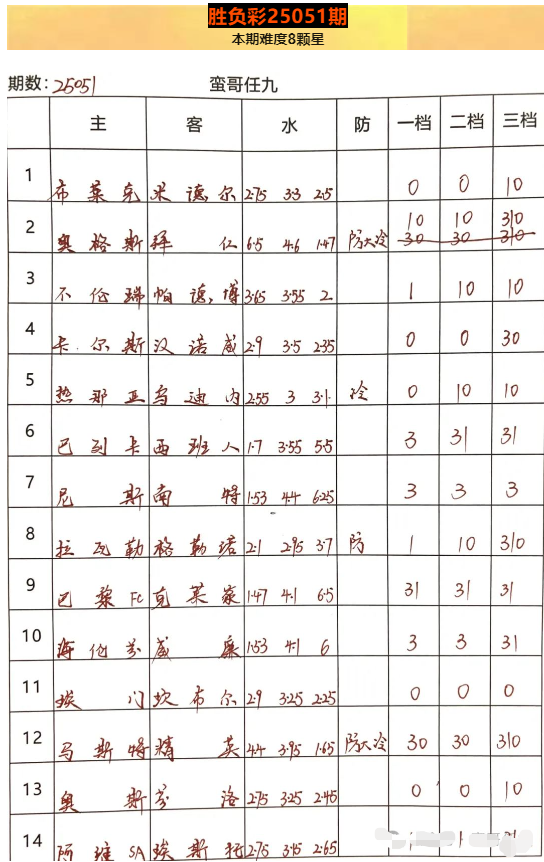 胜负彩25051期
本期难度8颗星
期数: 25051 蛮哥任九
主 客 水 防 一档 二档 三档
1 布莱克 米德尔 2·75 3·3 2·5 0 0 10
2 奥格斯 拜仁 6·5 4·6 1·47 防大冷 10 10 310
30 30 310
3 不伦瑞 帕德博 3·65 3·55 2 1 10 10
4 卡尔斯 汉诺威 2·9 3·5 2·35 0 0 30
5 热那亚 乌迪内 2·55 3 3·1 冷 0 10 10
6 巴列卡 西班人 1·7 3·55 5·5 3 31 31
7 尼斯 南特 1·53 4·4 6·25 3 3 3
8 拉瓦勒 格勒诺 2·1 2·95 3·7 防 1 10 310
9 巴黎FC 克莱蒙 1·47 4·1 6·5 31 31 31
10 海伦芬 威廉 1·53 4·1 6 3 3 31
11 埃门 坎布尔 2·9 3·25 2·25 0 0 0
12 马斯特 精英 4·4 3·95 1·65 防大冷 30 30 310
13 奥斯 芬洛 2·75 3·25 2·45 0 0 10
14 阿维SA 埃斯托 2·75 3·15 2·65 1 1 31